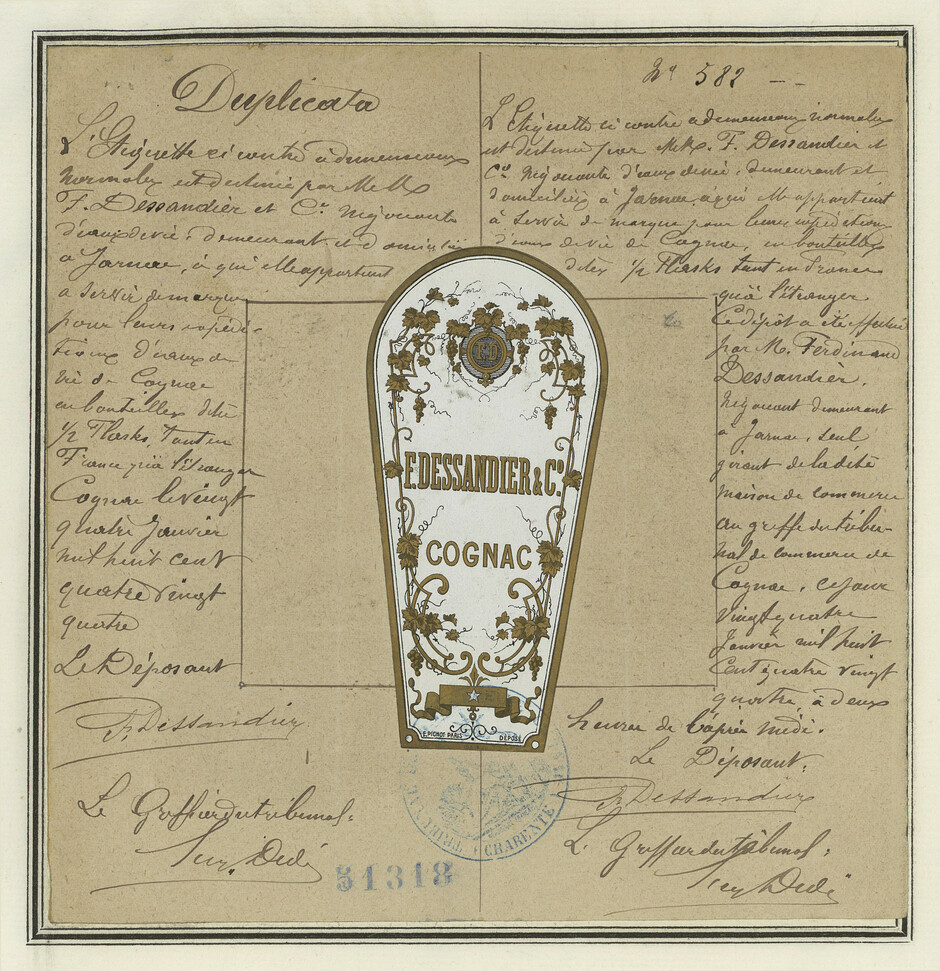 Duplicata
L'Etiquette ci contre à dimensions
normales est destinée par MM
F. Dessandier et Cie Négociants
d'eaux de vie, demeurant et domiciliés
à Jarnac, à qui elle appartient
à servir de marque
pour leurs expédi-
tions d'eaux de
vie de Cognac
en bouteilles dites
1/2 Flasks, tant en
France qu'à l'étranger
Cognac le vingt
quatre Janvier
mil huit cent
quatre vingt
quatre
Le Déposant
F. Dessandier
Le Greffier du tribunal,
No 582
L'Etiquette ci contre à dimensions normales
est destinée par MM. F. Dessandier et
Cie Négociants d'eaux de vie, demeurant et
domiciliés à Jarnac, à qui elle appartient
à servir de marque pour leurs expéditions
d'eaux de vie de Cognac, en bouteilles
dites 1/2 Flasks tant en France
qu'à l'étranger
Ce dépôt a été effectué
par M. Ferdinand
Dessandier,
Négociant demeurant
à Jarnac, seul
gérant de la dite
maison de commerce
au greffe du tribu-
nal de commerce de
Cognac, ce jour
vingt quatre
Janvier mil huit
cent quatre vingt
quatre, à deux
heures de l'après midi.
Le Déposant,
F. Dessandier
Le Greffier du tribunal,
FD
F. DESSANDIER & Co.
COGNAC
E. PICHOT PARIS
DÉPOSÉ
CHARENTE
51318